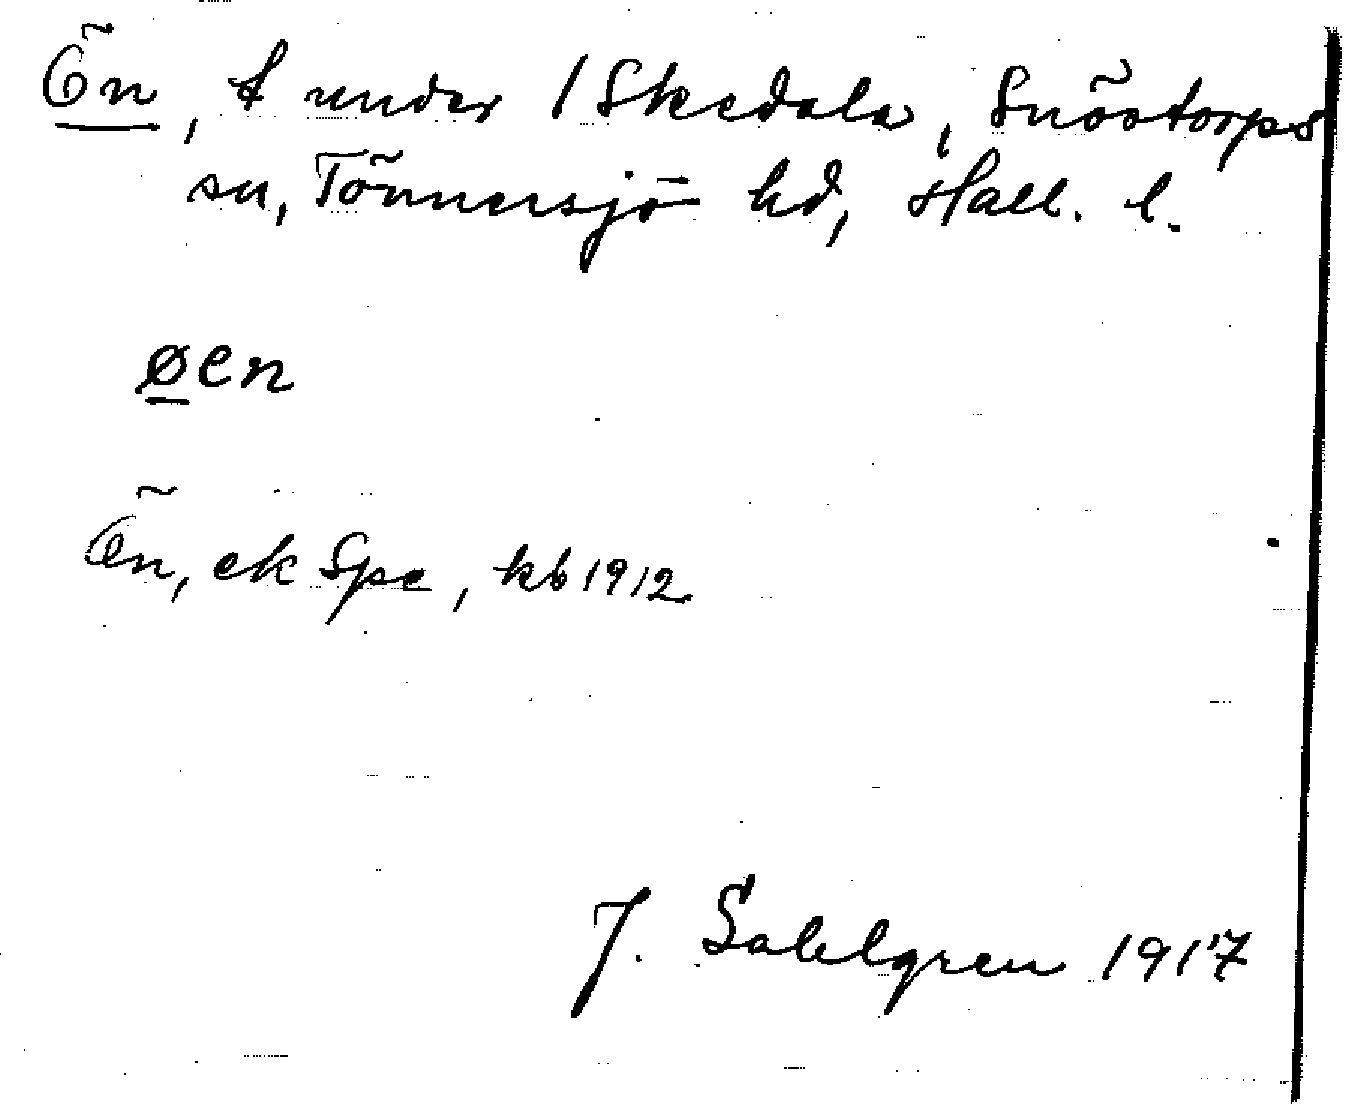 Ön, t under 1 Skedala, Snöstorps
sn, Tönnersjö hd, Hall. l.
øen
Ön, ek Spe, kb 1912
J. Sahlgren 1917